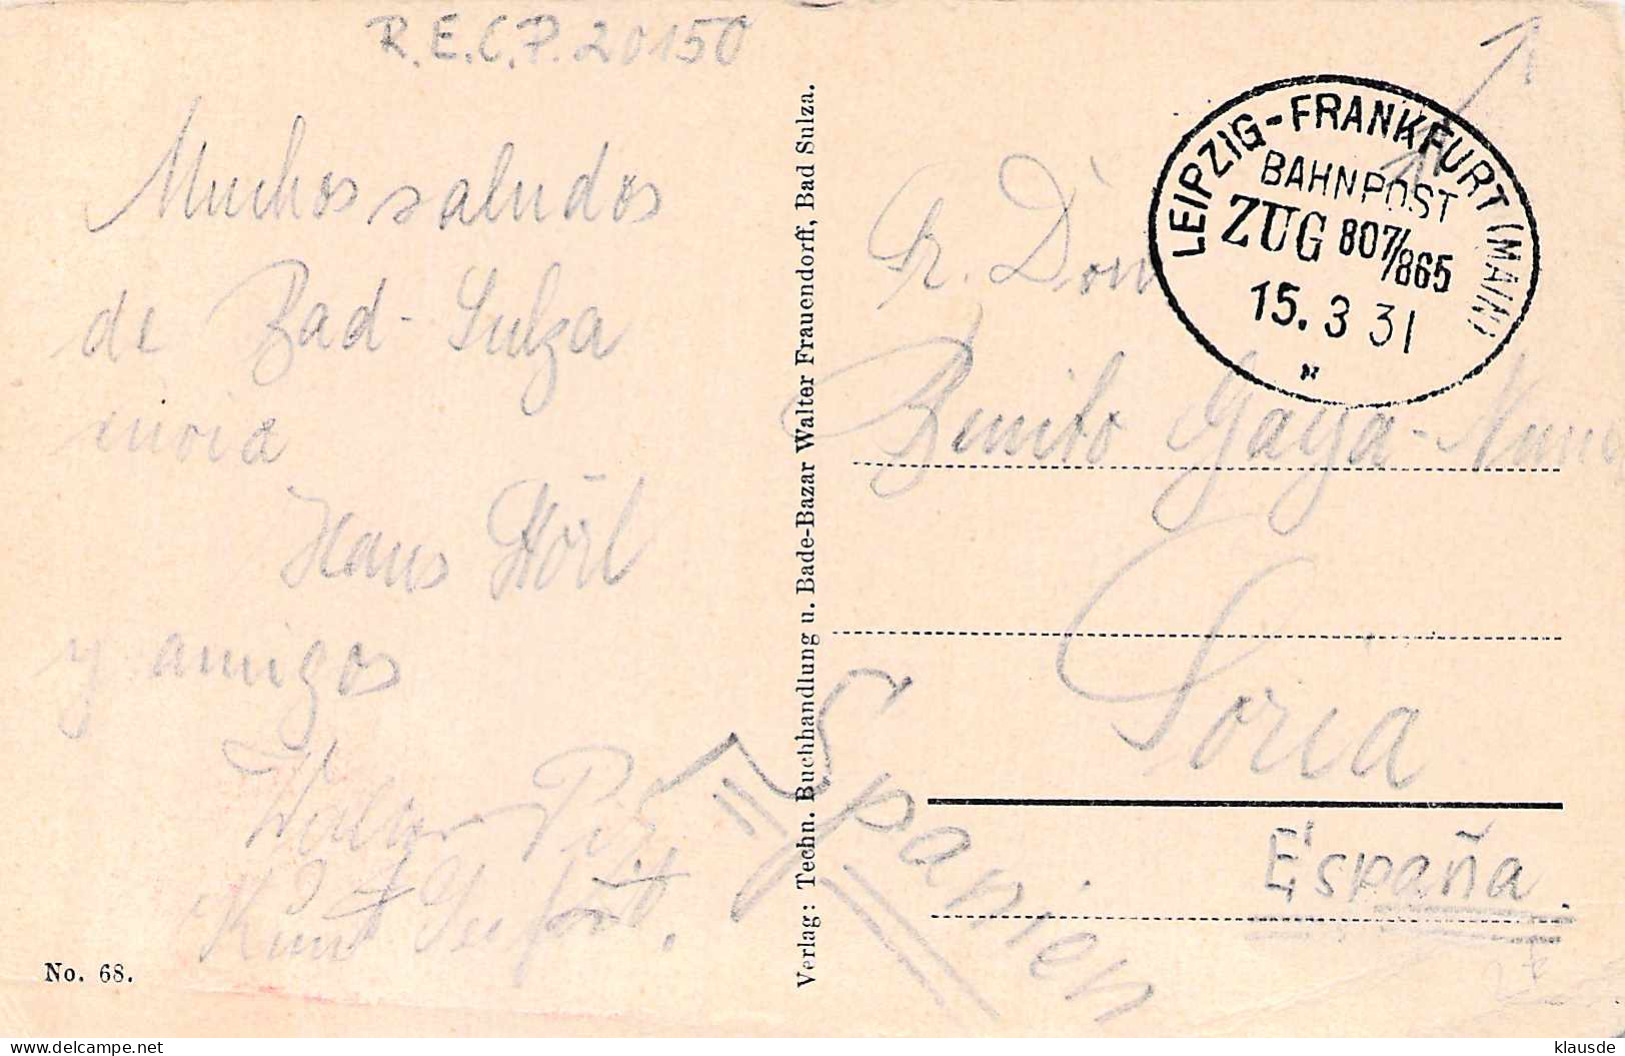 R.E.C.P. 20150
Muchos saludos
de Bad-Sulza
invia
Hans Hörl
y amigos
Kurt
No. 68.
Verlag: Techn. Buchhandlung u. Bade-Bazar Walter Frauendorff, Bad Sulza.
LEIPZIG-FRANKFURT (MAIN)
BAHNPOST
ZUG 807/865
15.3 31
Sr. Don
Benito Gaya-Nuno
Soria
España
Spanien
klausde